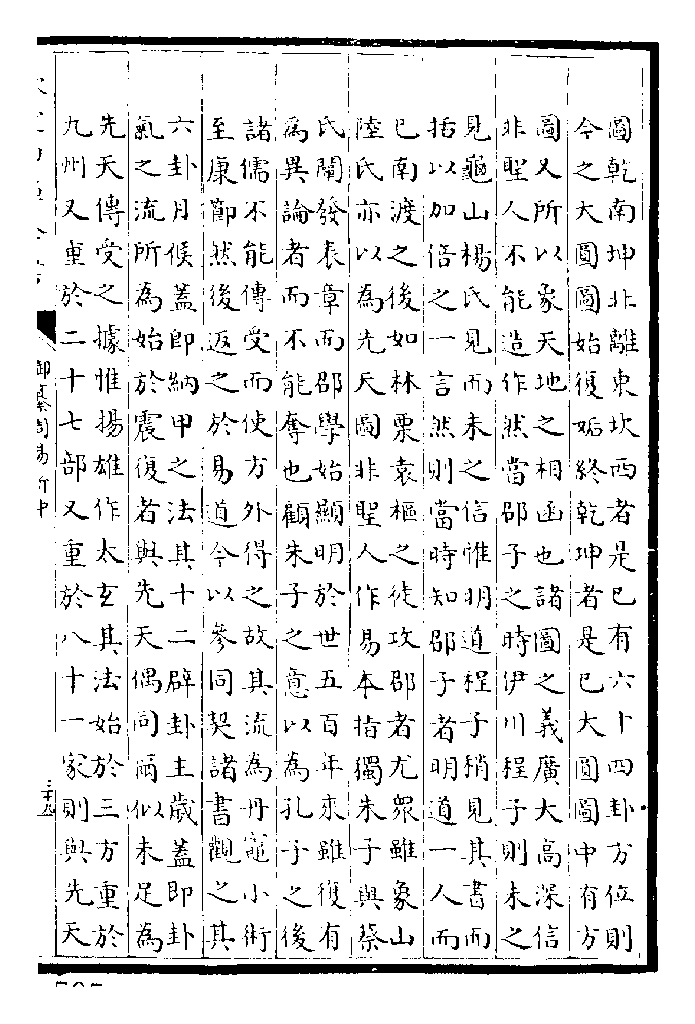 圖乾南坤北離東坎西者是已有六十四卦方位則
今之大圓圖始復姤終乾坤者是已大圓圖中有方
圖又所以象天地之相函也諸圖之義廣大高深信
非聖人不能造作然當邵子之時伊川程子則未之
見龜山楊氏見而未之信惟明道程子稍見其書而
括以加倍之一言然則當時知邵子者明道一人而
已南渡之後如林栗袁樞之徒攻邵者尤衆雖象山
陸氏亦以為先天圖非聖人作易本指獨朱子與蔡
氏闡發表章而邵學始顯明於世五百年來雖復有
為異論者而不能奪也顧朱子之意以為孔子之後
諸儒不能傳受而使方外得之故其流為丹竈小術
至康節然後返之於易道今以參同契諸書觀之其
六卦月候蓋即納甲之法其十二辟卦主歲蓋即卦
氣之流所為始於震復者與先天偶同而似未足為
先天傳受之據惟揚雄作太玄其法始於三方重於
九州又重於二十七部又重於八十一家則與先天
御纂周易折中